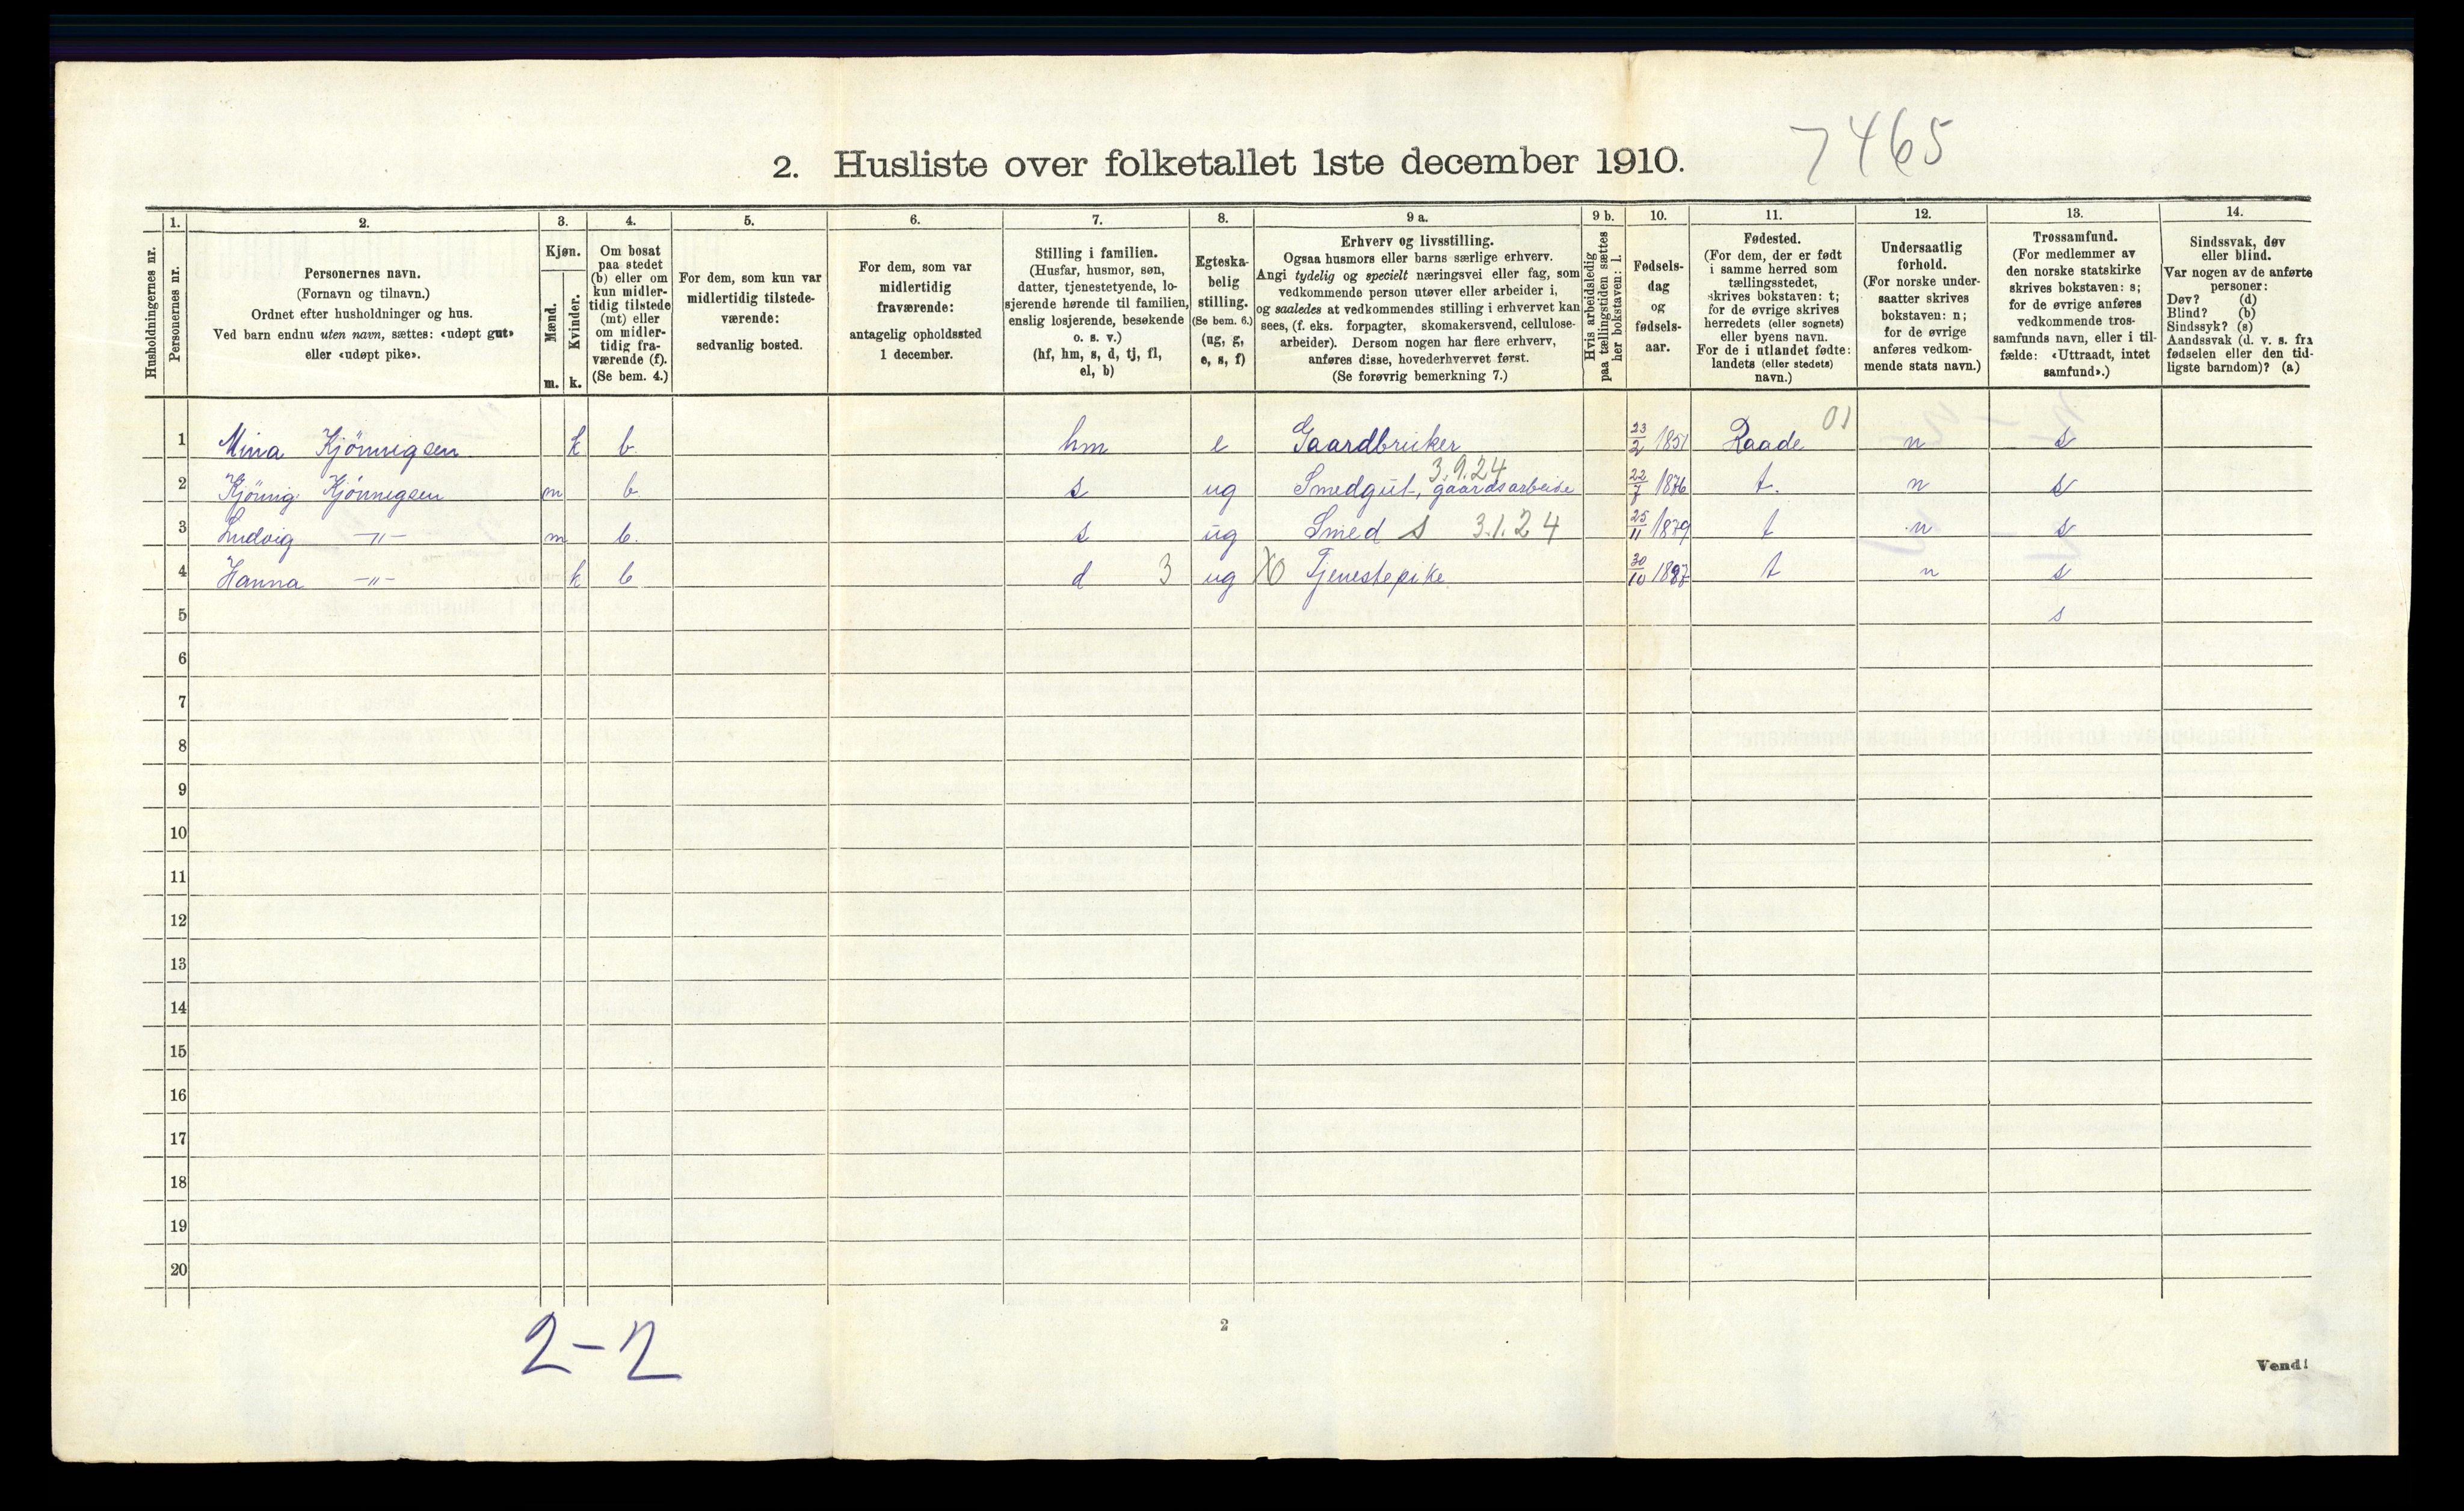 7465
2. Husliste over folketallet 1ste december 1910.
Husholdningernes nr.
1.
Personernes nr.
2.
Personernes navn.
(Fornavn og tilnavn.)
Ordnet efter husholdninger og hus.
Ved barn endnu uten navn, sættes: «udøpt gut»
eller «udøpt pike».
3.
Kjøn.
Mænd.
Kvinder.
m.
k.
4.
Om bosat
paa stedet
(b) eller om
kun midler-
tidig tilstede
(mt) eller
om midler-
tidig fra-
værende (f).
(Se bem. 4.)
5.
For dem, som kun var
midlertidig tilstede-
værende:
sedvanlig bosted.
6.
For dem, som var
midlertidig
fraværende:
antagelig opholdssted
1 december.
7.
Stilling i familien.
(Husfar, husmor, søn,
datter, tjenestetyende, lo-
sjerende hørende til familien,
enslig losjerende, besøkende
o. s. v.)
(hf, hm, s, d, tj, fl,
el, b)
8.
Egteska-
belig
stilling.
(Se bem. 6.)
(ug, g,
e, s, f)
9 a.
Erhverv og livsstilling.
Ogsaa husmors eller barns særlige erhverv.
Angi tydelig og specielt næringsvei eller fag, som
vedkommende person utøver eller arbeider i,
og saaledes at vedkommendes stilling i erhvervet kan
sees, (f. eks. forpagter, skomakersvend, cellulose-
arbeider). Dersom nogen har flere erhverv,
anføres disse, hovederhvervet først.
(Se forøvrig bemerkning 7.)
9 b.
Hvis arbeidsledig
paa tællingstiden sættes
her bokstaven: l.
10.
Fødsels-
dag
og
fødsels-
aar.
11.
Fødested.
(For dem, der er født
i samme herred som
tællingsstedet,
skrives bokstaven: t;
for de øvrige skrives
herredets (eller sognets)
eller byens navn.
For de i utlandet fødte:
landets (eller stedets)
navn.)
12.
Undersaatlig
forhold.
(For norske under-
saatter skrives
bokstaven: n;
for de øvrige
anføres vedkom-
mende stats navn.)
13.
Trossamfund.
(For medlemmer av
den norske statskirke
skrives bokstaven: s;
for de øvrige anføres
vedkommende tros-
samfunds navn, eller i til-
fælde: «Uttraadt, intet
samfund».)
14.
Sindssvak, døv
eller blind.
Var nogen av de anførte
personer:
Døv? (d)
Blind? (b)
Sindssyk? (s)
Aandssvak (d. v. s. fra
fødselen eller den tid-
ligste barndom)? (a)
01
1 Mina Kjönnigsen k b. hm e Gaardbruker 23/2 1851 Raade n s
3.9.24
2 Kjönnig Kjönnigsen m b. s ug Smedgut, gaardsarbeide 22/7 1876 t. n s
3 Ludvig -"- m b. s ug Smed s 3.1.24 25/11 1879 t n s
4 Hanna -"- k b d 3 ug Tjenestepike 30/10 1887 t n s
5 s
6
7
8
9
10
11
12
13
14
15
16
17
18
19
20
2-2
2
Vend!